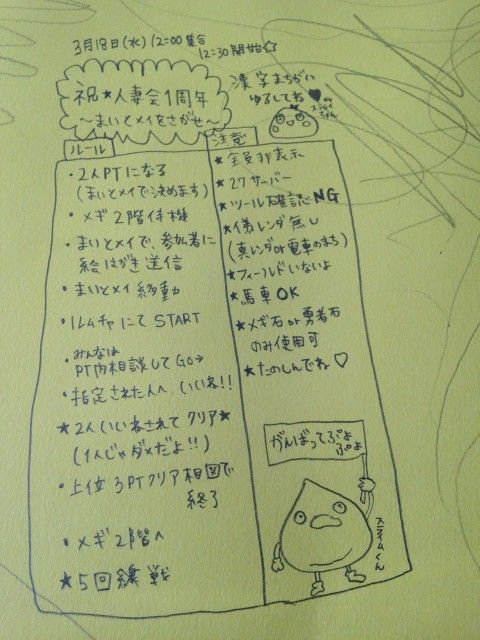 3月18日(水)12:00集合
12:30開始☆
祝★人妻会1周年
〜まいとメイをさがせ〜
漢字まちがい
ゆるしてね♥
スライムちゃん
ルール
・2人PTになる
(まいとメイで決めます)
・メギ2階待機
・まいとメイで、参加者に
絵はがき送信
・まいとメイ移動
・ルムチャにてSTART
・みんなは
PT内相談してGo→
・指定された人へ、いいね!!
★2人いいねされてクリア★
(1人じゃダメだよ!!)
・上位3PTクリア相図で
終了
・メギ2階へ
★5回戦
注意
★全員非表示
★27サーバー
★ツール確認NG
★偽レンダ無し
(真レンダor電車のまち)
★フィールドいないよ
★馬車OK
★メギ石or勇者石
のみ使用可
★たのしんでね♡
がんばってぷよ
ぷよ
スライムくん